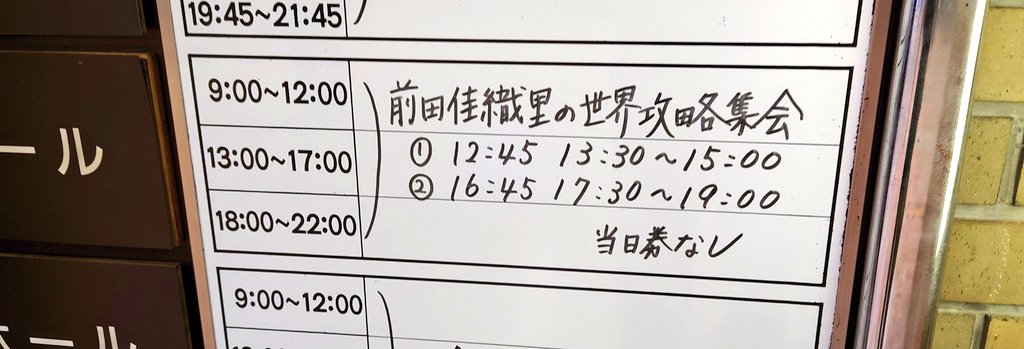 19:45~21:45
9:00~12:00
前田佳織里の世界攻略集会
13:00~17:00
① 12:45 13:30~15:00
② 16:45 17:30~19:00
18:00~22:00
当日券なし
9:00~12:00
ール
ホール